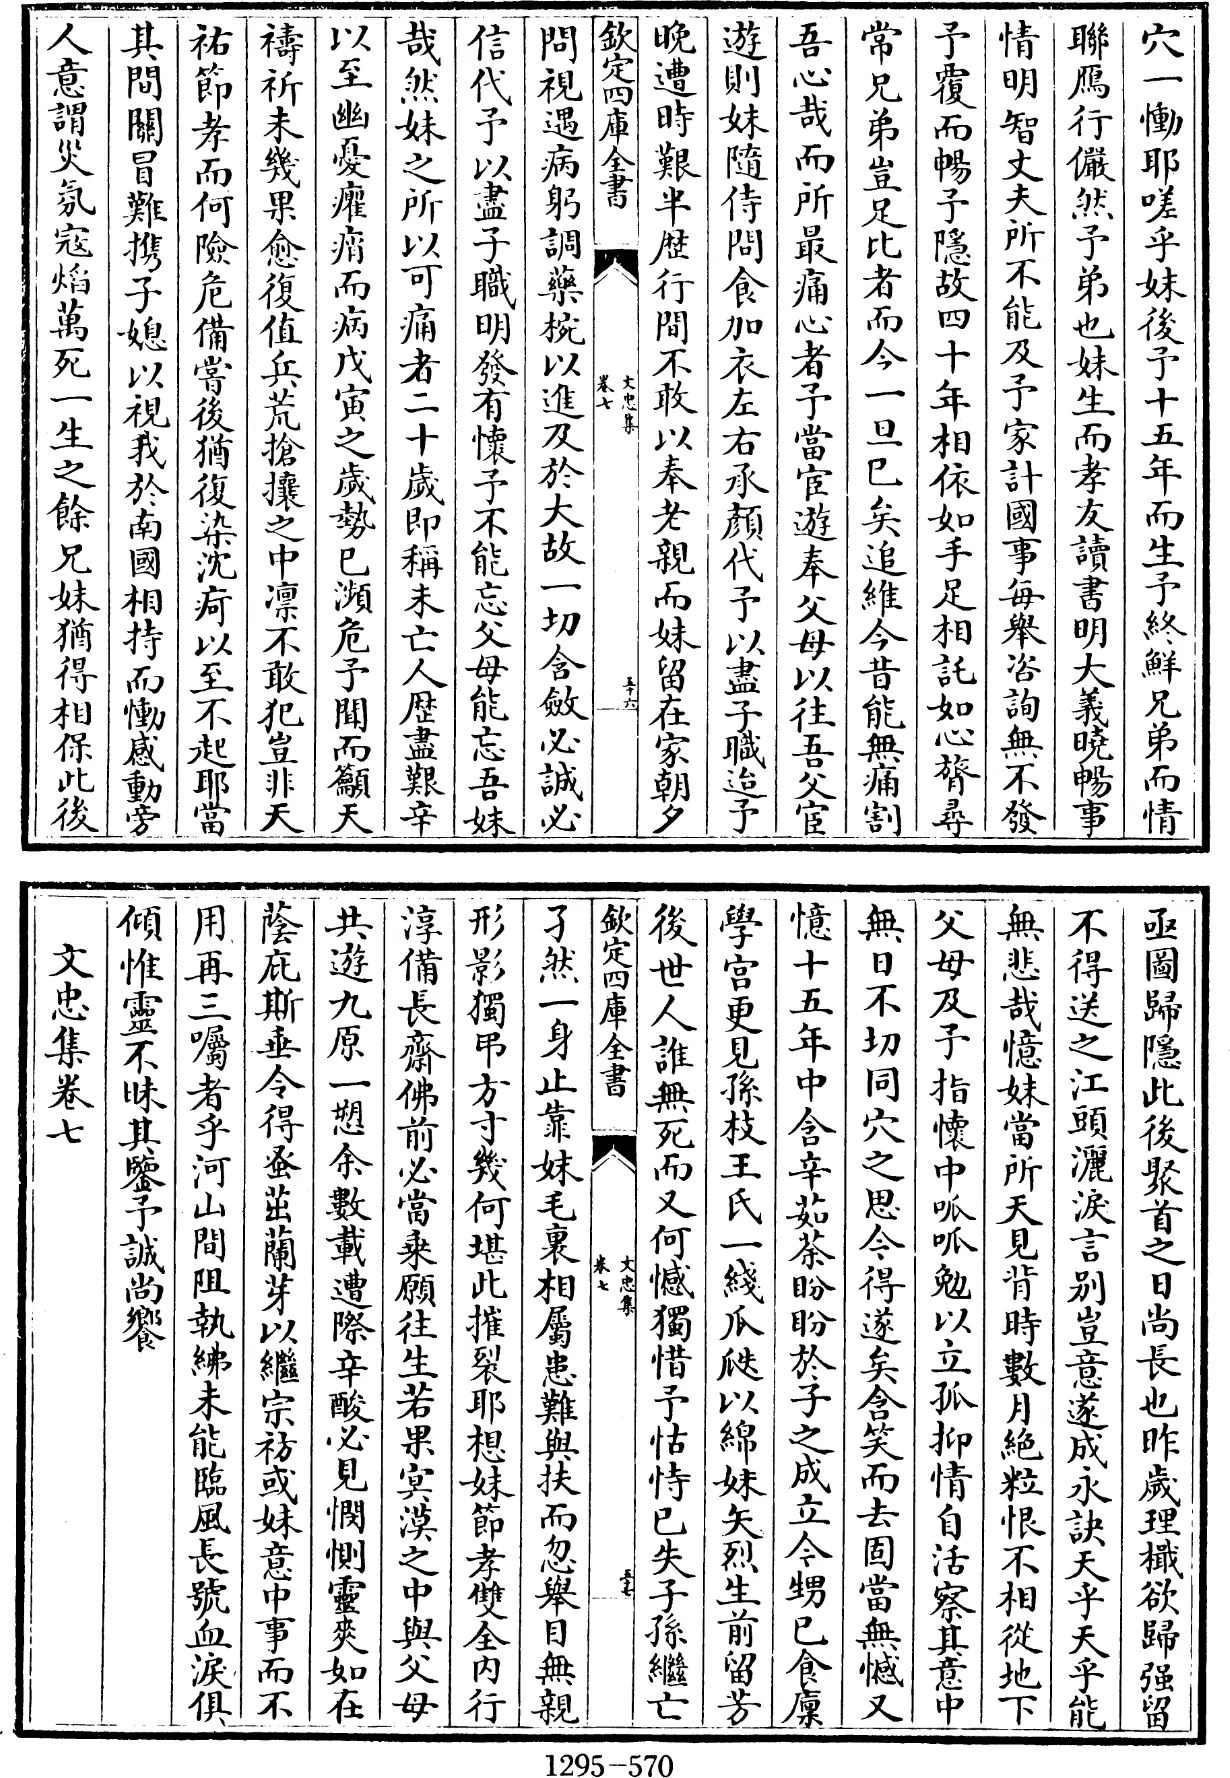 穴一慟耶嗟乎妹後予十五年而生予終鮮兄弟而情
聯鴈行儼然予弟也妹生而孝友讀書明大義曉暢事
情明智丈夫所不能及予家計國事每舉咨詢無不發
予覆而暢予隱故四十年相依如手足相託如心膂尋
常兄弟豈足比者而今一旦已矣追維今昔能無痛割
吾心哉而所最痛心者予當宦遊奉父母以往吾父宦
遊則妹隨侍問食加衣左右承顏代予以盡子職迨予
晚遭時艱半歴行間不敢以奉老親而妹留在家朝夕
欽定四庫全書
文忠集
卷七
五十六
問視遇病躬調藥椀以進及於大故一切含斂必誠必
信代予以盡子職明發有懷予不能忘父母能忘吾妹
哉然妹之所以可痛者二十歲即稱未亡人歴盡艱辛
以至幽憂癯瘠而病戊寅之歲勢已瀕危予聞而籲天
禱祈未幾果愈復值兵荒搶攘之中凛不敢犯豈非天
祐節孝而何險危備嘗後猶復染沈疴以至不起耶當
其間關冒難携子媳以視我於南國相持而慟感動旁
人意謂災氛寇焰萬死一生之餘兄妹猶得相保此後
亟圖歸隱此後聚首之日尚長也昨歲理檝欲歸强留
不得送之江頭灑淚言别豈意遂成永訣天乎天乎能
無悲哉憶妹當所天見背時數月絶粒恨不相從地下
父母及予指懷中呱呱勉以立孤抑情自活察其意中
無日不切同穴之思今得遂矣含笑而去固當無憾又
憶十五年中含辛茹荼盼盼於子之成立今甥已食廩
學宫更見孫枝王氏一綫瓜瓞以綿妹矢烈生前留芳
後世人誰無死而又何憾獨惜予怙恃已失子孫繼亡
欽定四庫全書
文忠集
卷七
五十七
孑然一身止靠妹毛裏相屬患難與扶而忽舉目無親
形影獨弔方寸幾何堪此摧裂耶想妹節孝雙全内行
淳備長齋佛前必當乗願往生若果冥漠之中與父母
共遊九原一愬余數載遭際辛酸必見憫惻靈爽如在
蔭庇斯垂令得蚤茁蘭芽以繼宗祊或妹意中事而不
用再三囑者乎河山間阻執紼未能臨風長號血淚俱
傾惟靈不昧其鑒予誠尚饗
文忠集卷七
1295-570